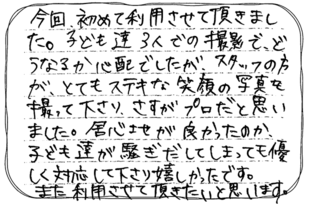 今回、初めて利用させて頂きまし
た。子ども達3人での撮影で、ど
うなるか心配でしたが、スタッフの方
が、とてもステキな笑顔の写真を
撮って下さり、さすがプロだと思い
ました。居心地が良かったのか、
子ども達が騒ぎだしてしまっても優
しく対応して下さり嬉しかったです。
また利用させて頂きたいと思います。